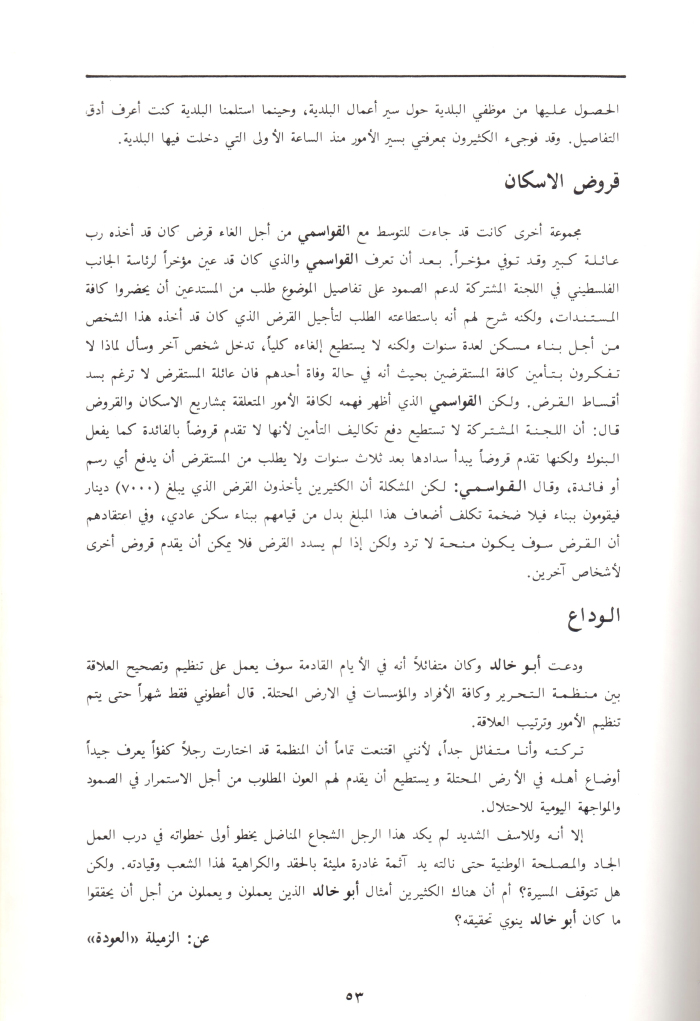 الحصول عليها من موظفي البلدية حول سير أعمال البلدية، وحينما استلمنا البلدية كنت أعرف أدق
التفاصيل. وقد فوجىء الكثيرون بمعرفتي بسير الأمور منذ الساعة الأولى التي دخلت فيها البلدية.
قروض الاسكان
مجموعة أخرى كانت قد جاءت للتوسط مع القواسمي من أجل الغاء قرض كان قد أخذه رب
عائلة كبير وقد توفي مؤخراً. بعد أن تعرف القواسمي والذي كان قد عين مؤخراً لرئاسة الجانب
الفلسطيني في اللجنة المشتركة لدعم الصمود على تفاصيل الموضوع طلب من المستدعين أن يحضروا كافة
المستندات، ولكنه شرح لهم أنه باستطاعته الطلب لتأجيل القرض الذي كان قد أخذه هذا الشخص
من أجل بناء مسكن لعدة سنوات ولكنه لا يستطيع إلغاءه كلياً، تدخل شخص آخر وسأل لماذا لا
تفكرون بتأمين كافة المستقرضين بحيث أنه في حالة وفاة أحدهم فان عائلة المستقرض لا ترغم بسد
أقساط القرض. ولكن القواسمي الذي أظهر فهمه لكافة الأمور المتعلقة بمشاريع الاسكان والقروض
قال: أن اللجنة المشتركة لا تستطيع دفع تكاليف التأمين لأنها لا تقدم قروضاً بالفائدة كما يفعل
البنوك ولكنها تقدم قروضاً يبدأ سدادها بعد ثلاث سنوات ولا يطلب من المستقرض أن يدفع أي رسم
أو فائدة، وقال القواسمي: لكن المشكلة أن الكثيرين يأخذون القرض الذي يبلغ (٧٠٠٠) دينار
فيقومون ببناء فيلا ضخمة تكلف أضعاف هذا المبلغ بدل من قيامهم ببناء سكن عادي، وفي اعتقادهم
أن القرض سوف يكون منحة لا ترد ولكن إذا لم يسدد القرض فلا يمكن أن يقدم قروض أخرى
لأشخاص آخرين.
الوداع
ودعت أبو خالد وكان متفائلاً أنه في الأيام القادمة سوف يعمل على تنظيم وتصحيح العلاقة
بين منظمة التحرير وكافة الأفراد والمؤسسات في الارض المحتلة. قال أعطوني فقط شهراً حتى يتم
تنظيم الأمور وترتيب العلاقة.
تركته وأنا متفائل جداً، لأنني اقتنعت تماماً أن المنظمة قد اختارت رجلاً كفؤاً يعرف جيداً
أوضاع أهله في الأرض المحتلة ويستطيع أن يقدم لهم العون المطلوب من أجل الاستمرار في الصمود
والمواجهة اليومية للاحتلال.
إلا أنه وللاسف الشديد لم يكد هذا الرجل الشجاع المناضل يخطو أولى خطواته في درب العمل
الجاد والمصلحة الوطنية حتى نالته يد آثمة غادرة مليئة بالحقد والكراهية لهذا الشعب وقيادته. ولكن
هل تتوقف المسيرة؟ أم أن هناك الكثيرين أمثال أبو خالد الذين يعملون ويعملون من أجل أن يحققوا
ما كان أبو خالد ينوي تحقيقه؟
عن: الزميلة «العودة»
٥٣